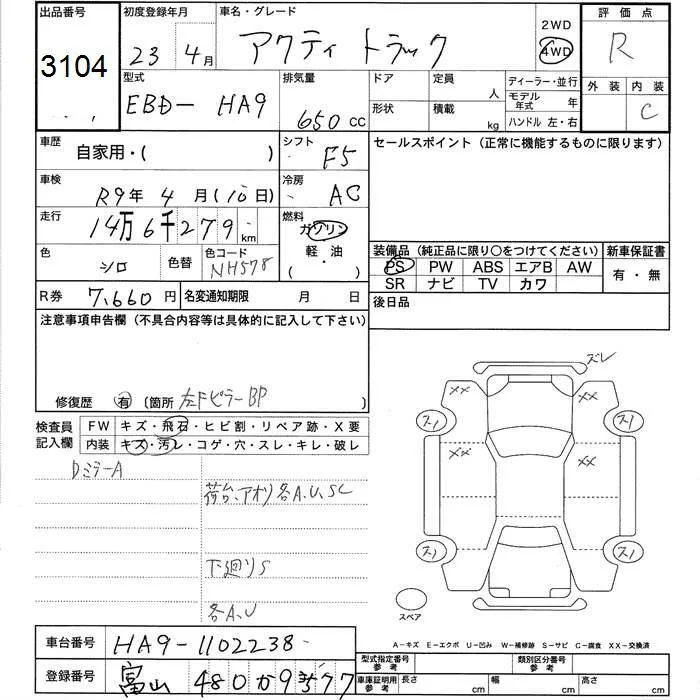 出品番号 3104
初度登録年月 23 4月
車名・グレード アクティ トラック
2WD 4WD
評価点 R
外装 内装 C
型式 EBD- HA9
排気量 650cc
ドア 形状
定員 人 積載 kg
ディーラー・並行
モデル年式 年
ハンドル 左・右
車歴 自家用・( )
シフト F5
セールスポイント(正常に機能するものに限ります)
車検 R9年 4月(10日)
冷房 AC
走行 14万6千279km
燃料 ガソリン 軽・油 ( ・ )
色 シロ 色替 色コード NH578
装備品(純正品に限り〇をつけてください) 新車保証書
PS PW ABS エアB AW 有・無
SR ナビ TV カワ
R券 7,660円 名変通知期限 月 日
後日品
注意事項申告欄(不具合内容等は具体的に記入して下さい)
修復歴 有 (箇所 左Fピラー BP )
検査員記入欄 FW キズ・飛石・ヒビ割・リペア跡・X要
内装 キズ・汚レ・コゲ・穴・スレ・キレ・破レ
Dミラー A
荷台、アオリ各A.U.SC
下廻りS
各A.U
ズレ
XX XX
スノ スノ
XX XX
スノ スノ
スペア
A-キズ E-エクボ U-凹み W-補修跡 S-サビ C-腐食 XX-交換済
車台番号 HA9-1102238
型式指定番号 参考 類別区分番号 参考
登録番号 富山 480 か 9577
車庫証明用 参考 長さ cm 幅 cm 高さ cm